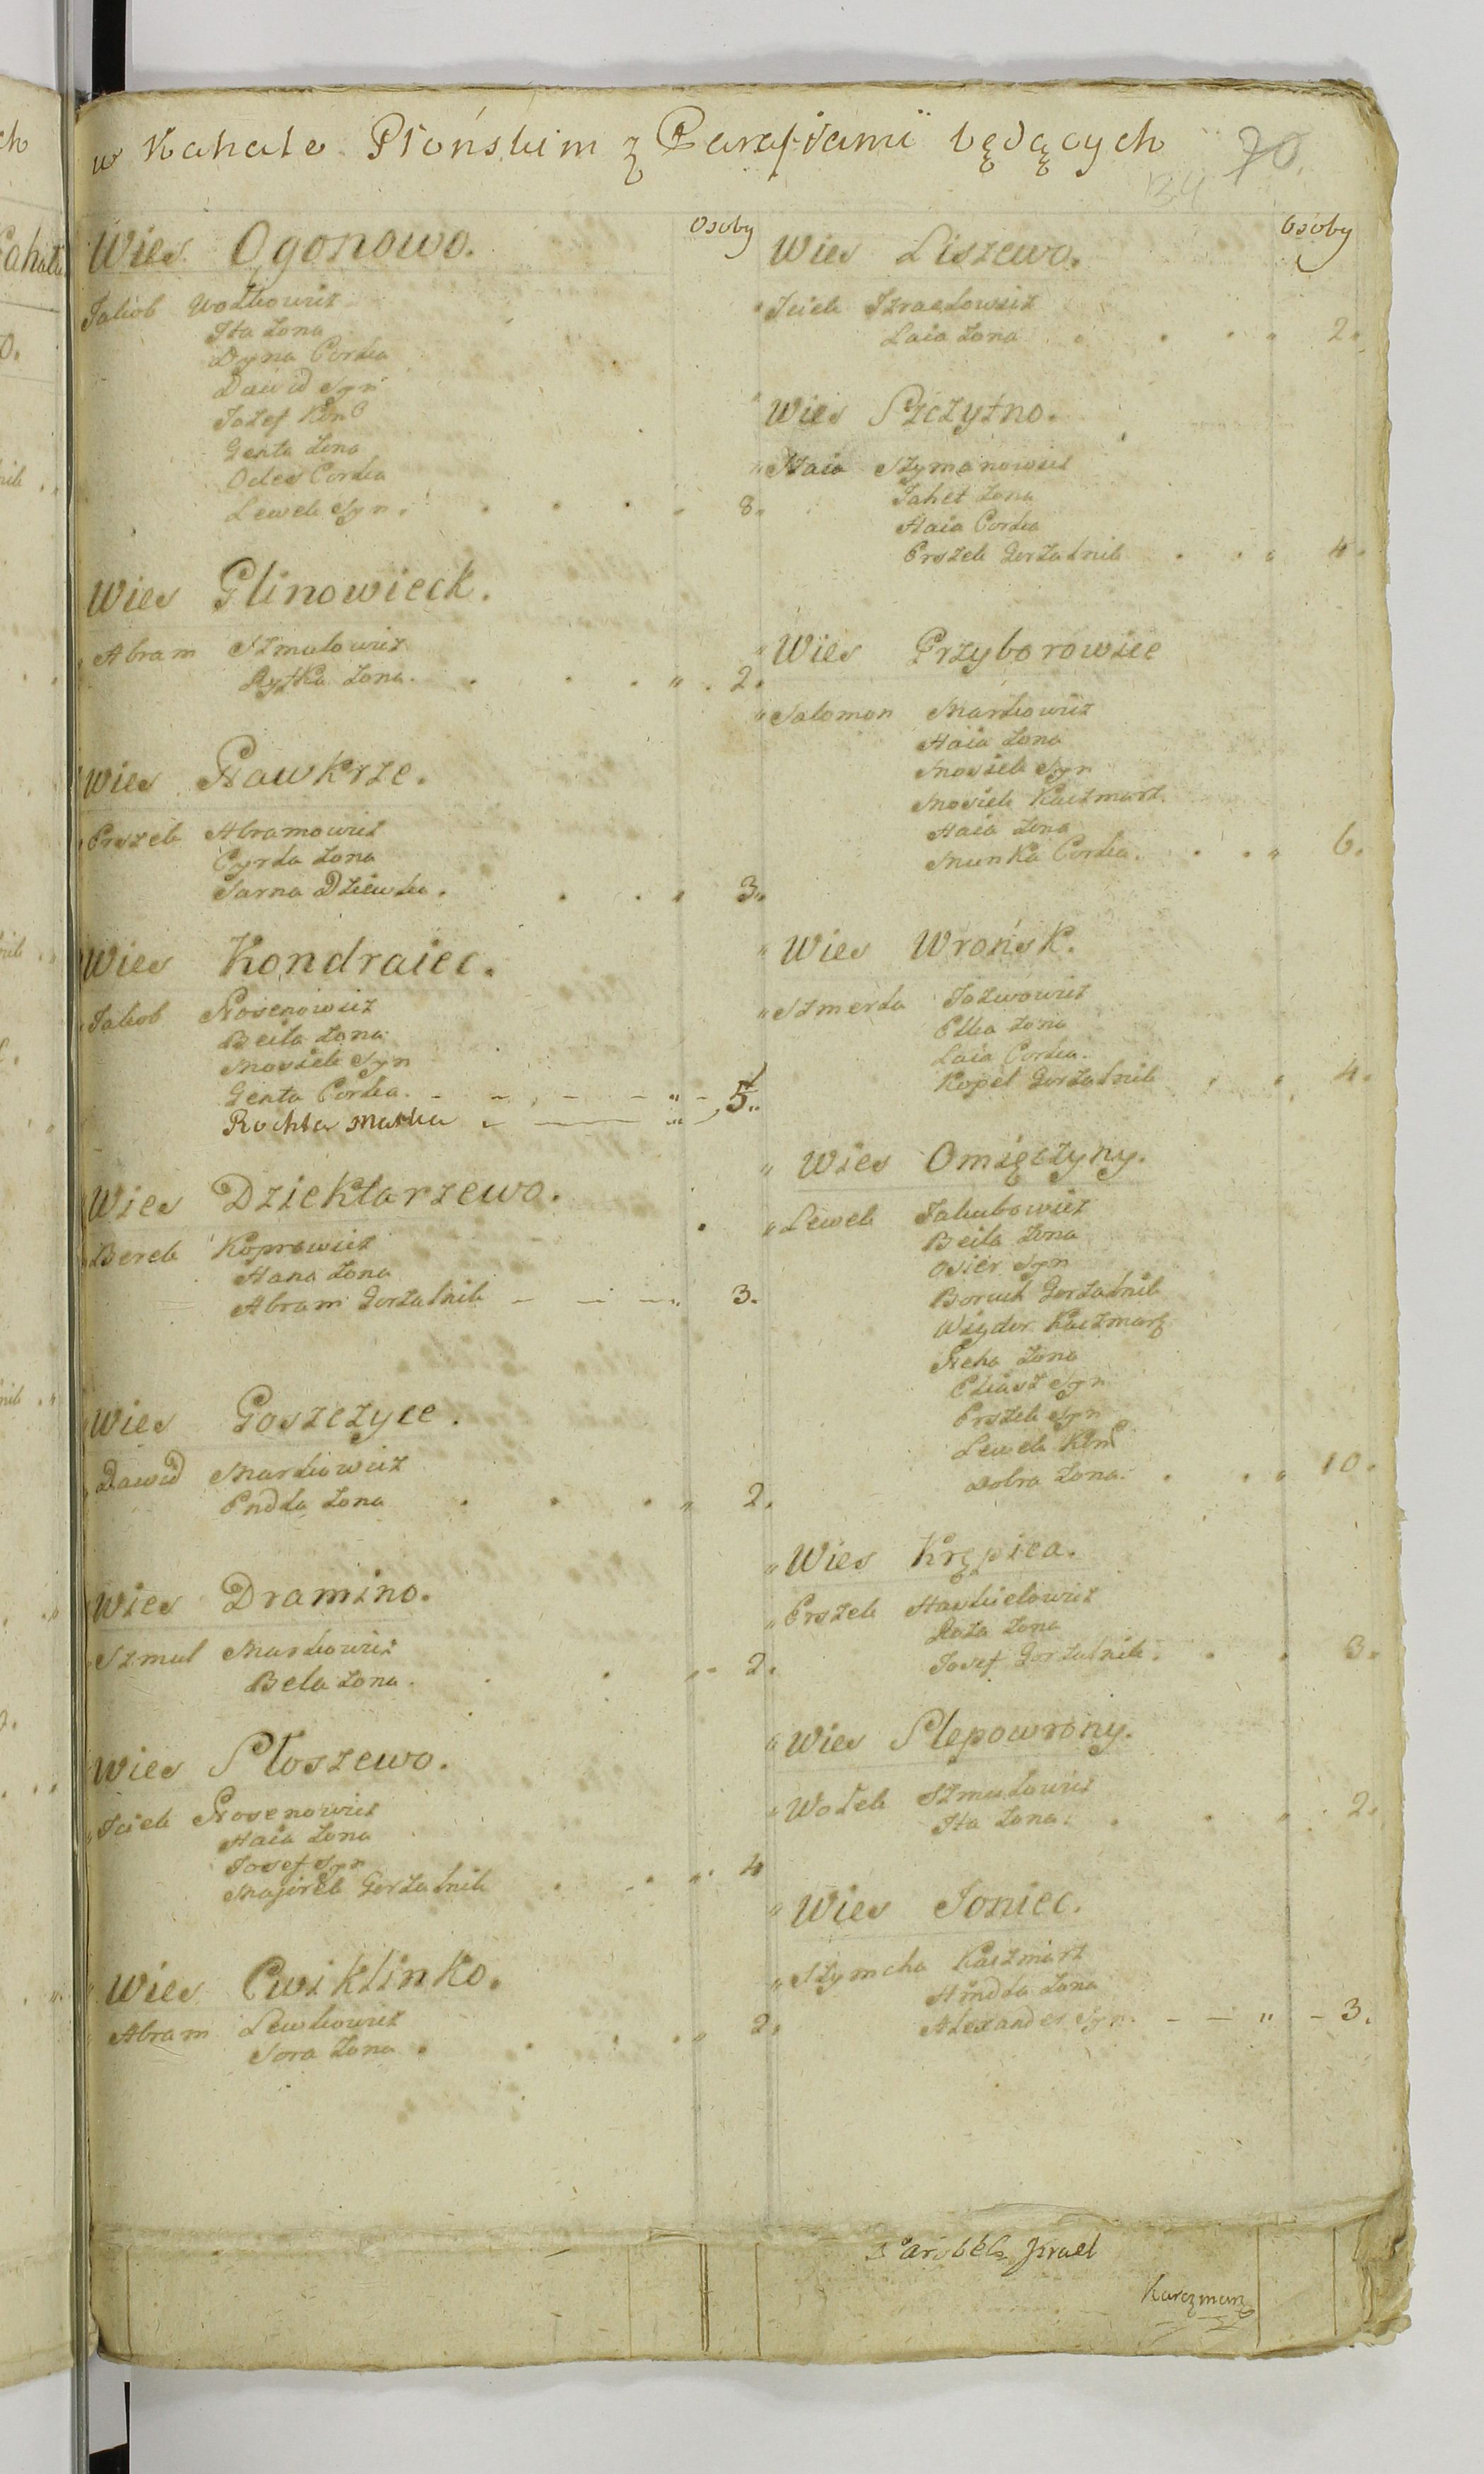 w Kahale Płońskim z Parafiami będących
70.
134
Osoby
Wies Ogonowo.
Jakob Wolkowicz
Ita Zona
Dyna Corka
Dawid Syn
Jozef Kmo
Genta Zona
Odes Corka
Lewek Syn. 8.
Wies Glinowieck.
Abram Szmulowicz
Ryfka Zona. 2.
Wies Rawkrze.
Erszek Abramowicz
Cyrla Zona
Sarna Dziewka. 3.
Wies Kondraiec.
Jakob Rosenowicz
Beila Zona
Mosiek Syn
Genta Corka. 5.
Rochla Matka
Wies Dziektarzewo.
Berek Koprowicz
Hana Zona
Abram Gorzalnik 3.
Wies Goszczyce.
Dawid Markowicz
Endla Zona 2.
Wies Dramino.
Szmul Markowicz
Bela Zona. 2.
Wies Płoszewo.
Icick Rosenowicz
Haia Zona
Josef Syn
Majorek Gorzalnik 4
Wies Cwiklinko.
Abram Lewkowicz
Sora Zona. 2.
Osoby
Wies Liszewo.
Icick Izraelowicz
Laia Zona 2.
Wies Szczytno.
Haia Szymanowicz
Jahet Zona
Haia Corka
Erszek Gorzalnik 4.
Wies Przyborowiec
Salomon Markowicz
Haia Zona
Mosiek Syn
Mosiek Kaczmarz.
Haia Zona
Munka Corka. 6.
Wies Wrońsk.
Szmerla Jozwowicz
Elka Zona
Laia Corka.
Kopel Gorzalnik 4.
Wies Omięczyny.
Lewek Jakubowicz
Beila Zona
Osier Syn
Boruch Gorzalnik
Wigdor Kaczmarz
Reha Zona
Eliasz Syn
Erszek Syn
Lewek Kmo
Dobra Zona. 10.
Wies Krępica.
Erszek Haskielowicz
Roza Zona
Josef Gorzalnik. 3.
Wies Slepowrony.
Wolek Szmulowicz
Ita Zona. 2.
Wies Joniec.
Szymcha Kaczmarz
Hindla Zona
Alexander Syn. 3.
Israel
Karczmarz